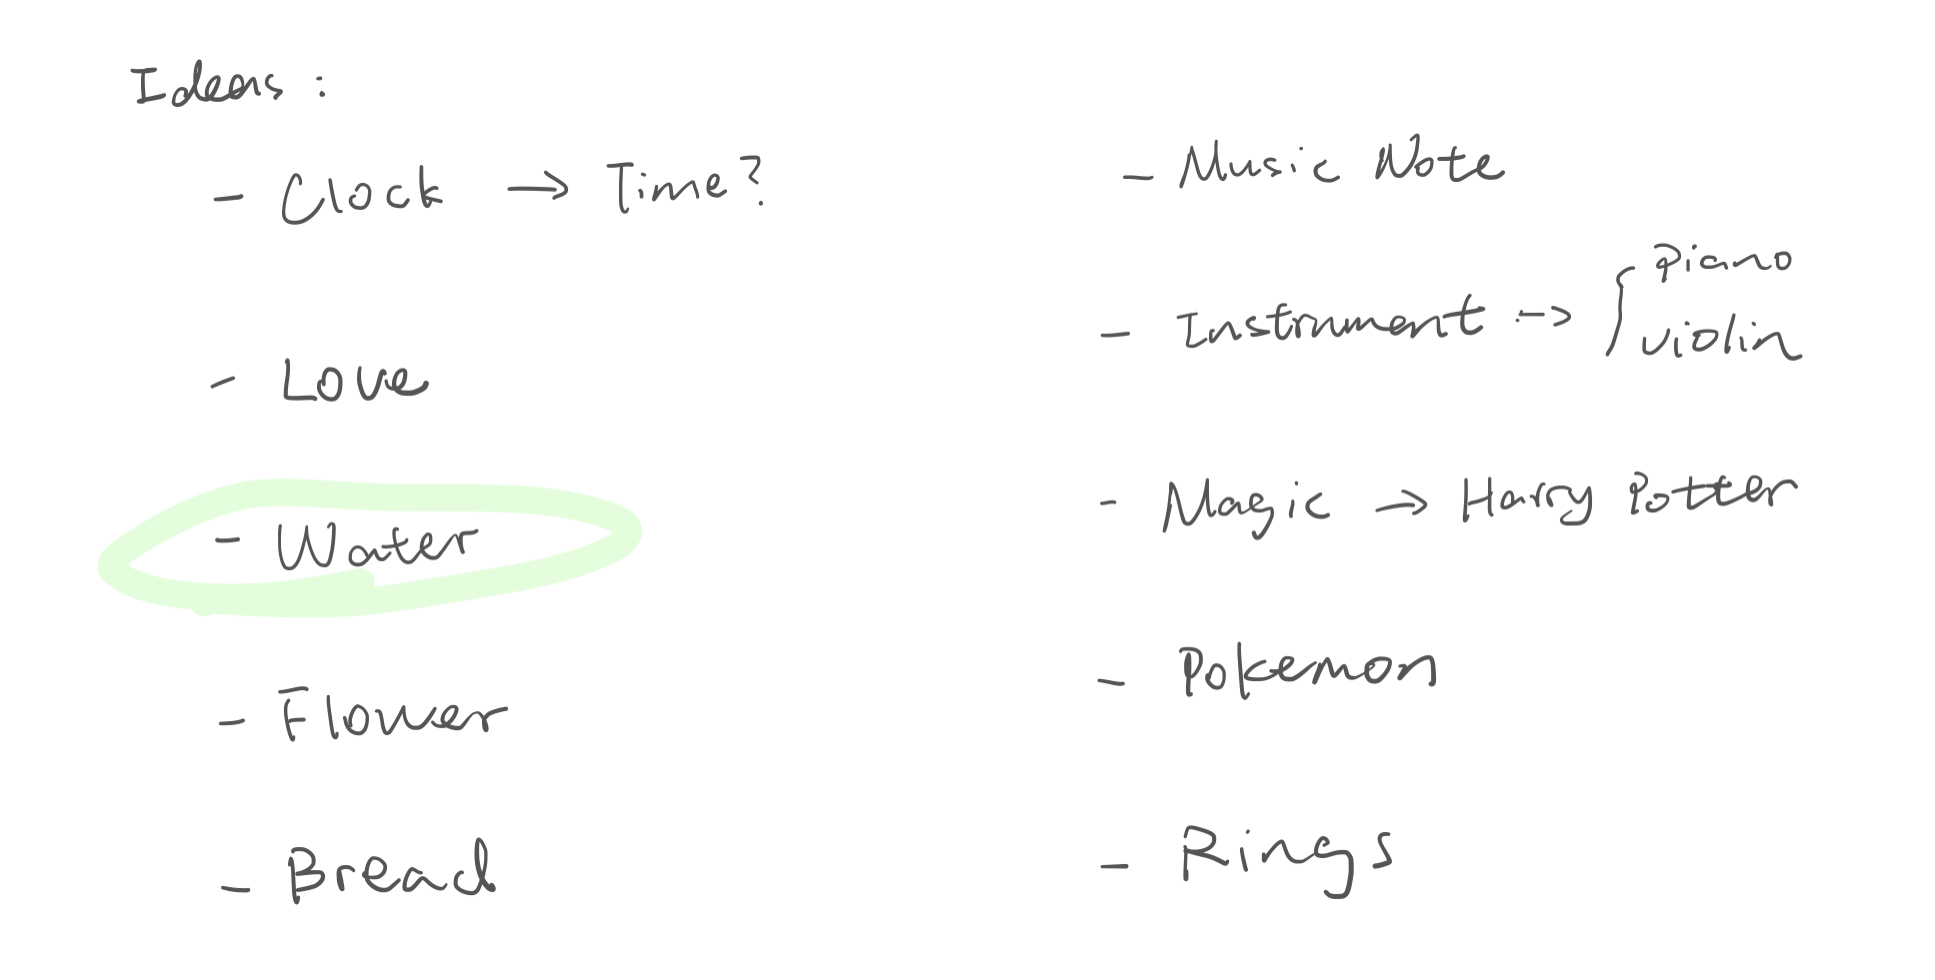 Ideas :
- Clock → Time?
- Love
- Water
- Flower
- Bread
- Music Note
- Instrument --> { piano
violin
- Magic → Harry Potter
- Pokemon
- Rings